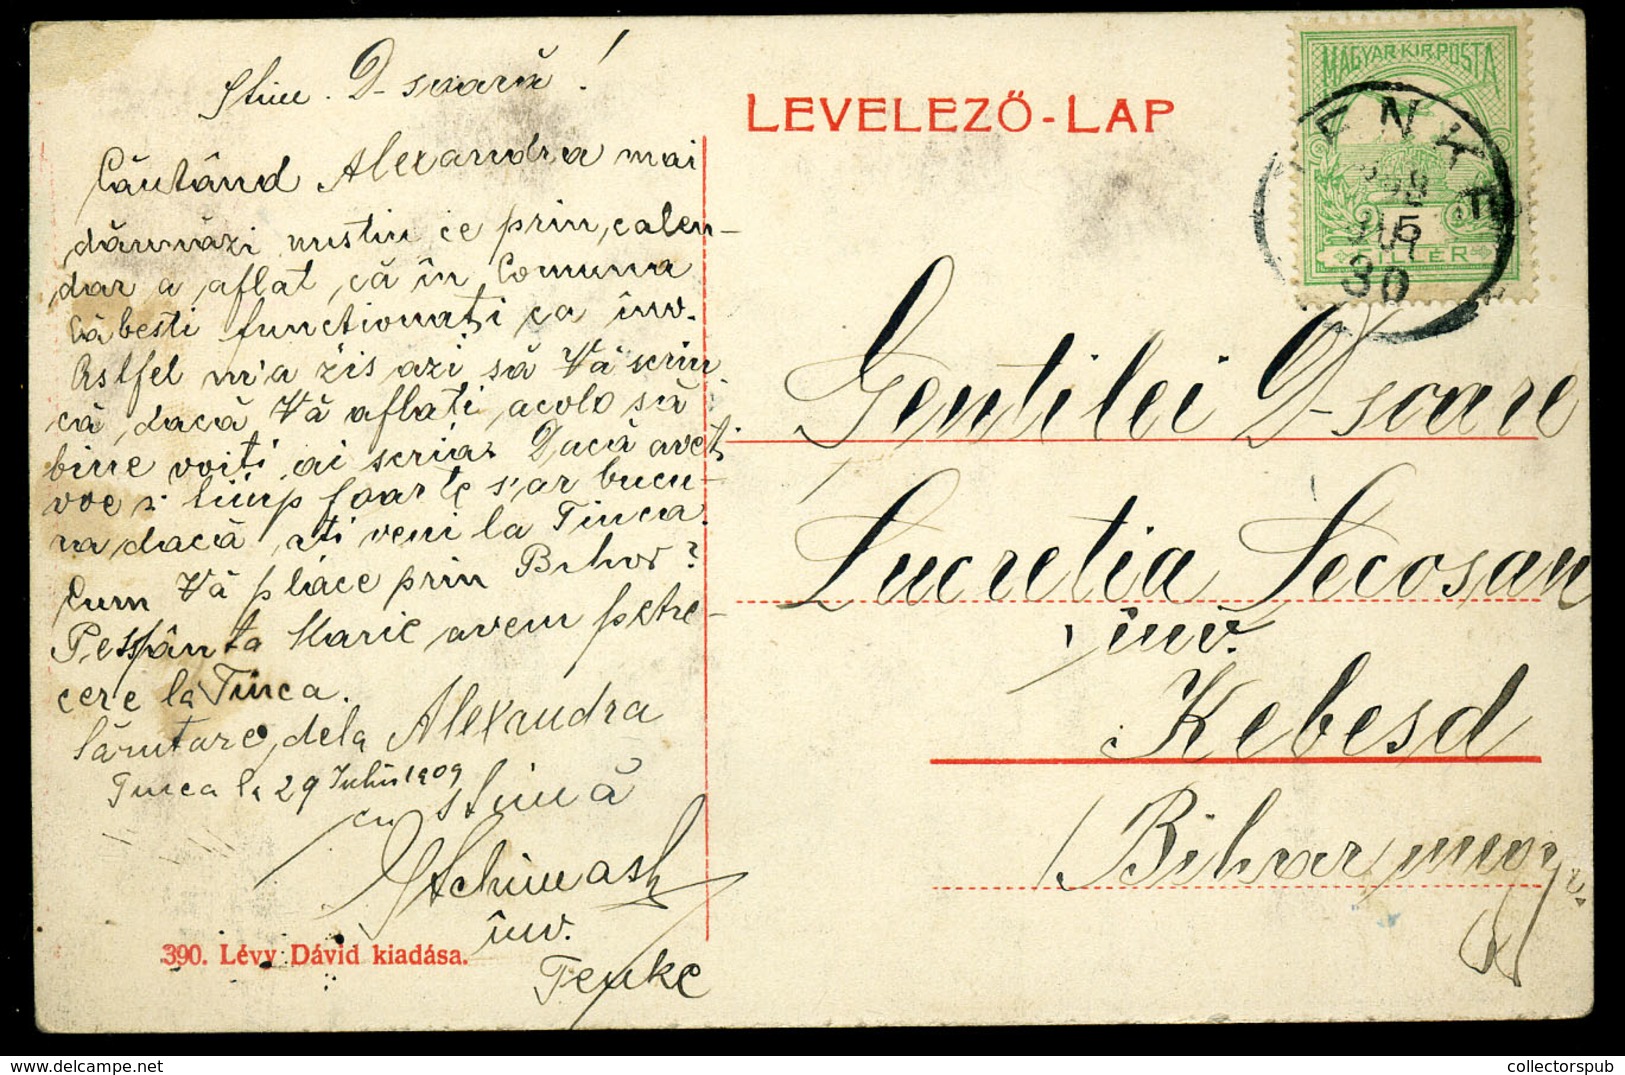 Stim. D-soară!
Căutând Alexandra mai
dăunăzi nustiu ce prin calen-
dar a aflat, că în Comuna
Căbesti functionati ca înv.
Astfel m'a zis azi să Vă scriu
că, dacă Vă aflati acolo să
bine voiti ai scria. Dacă aveti
voe si timp foarte s'ar bucu-
ra dacă ati veni la Tinca.
Cum Vă place prin Bihor?
Pe Sfânta Marie avem petre-
cere la Tinca.
Sărutare dela Alexandra
Tinca la 29 Iuliu 1909
cu stimă
înv.
Tenke
390. Lévy Dávid kiadása.
LEVELEZŐ-LAP
MAGYAR KIR. POSTA
FILLÉR
TENKE
30
Gentilei D-soare
Lucretia Secosan
inv.
Kebesd
Bihar megye.
collectorspub